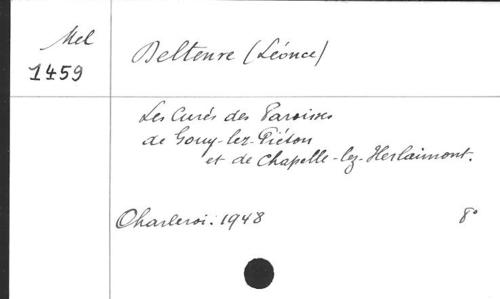 Mel
1459
Deltenre (Léonce)
Les Curés des Paroisses
de Gouy-lez-Piéton
et de Chapelle-lez-Herlaimont.
Charleroi. 1948 8°